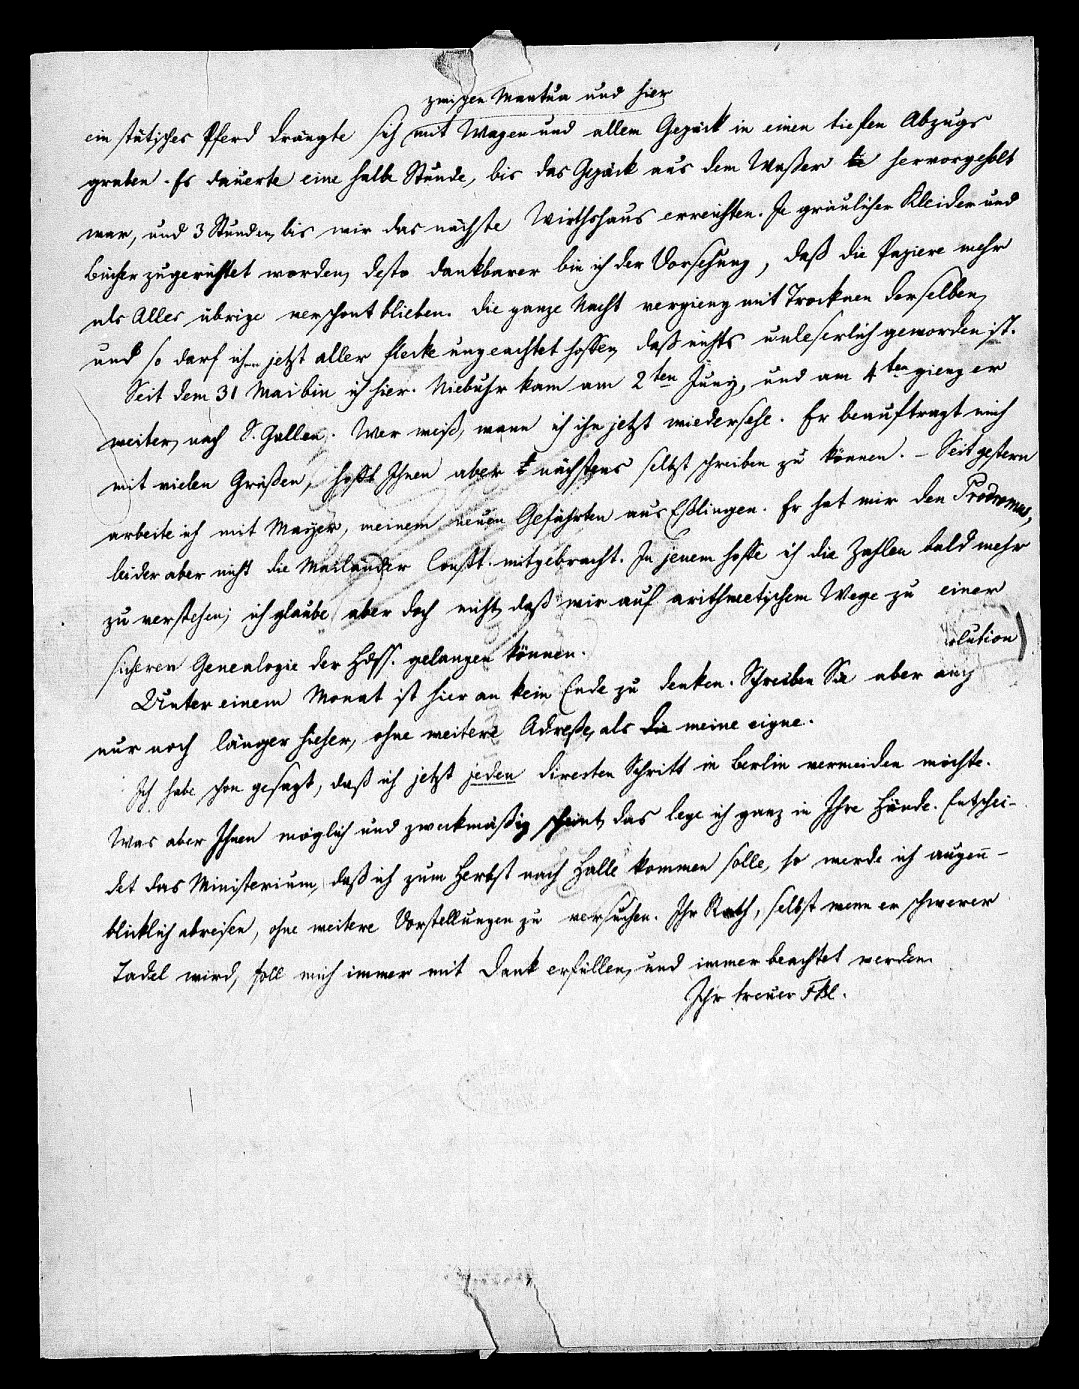 zwischen Mantua und hier
ein stätisches Pferd drängte sich mit Wagen und allem Gepäck in einen tiefen Abzugs
graben. Es dauerte eine halbe Stunde, bis das Gepäck aus dem Waßer hervorgeholt
war, und 3 Stunden, bis wir das nächste Wirthshaus erreichten. Je gräulicher Kleider und
Bücher zugerichtet worden, desto dankbarer bin ich der Vorsehung, daß die Papiere mehr
als Alles übrige verschont blieben. Die ganze Nacht vergieng mit Trocknen derselben,
und so darf ich jetzt aller Flecke ungeachtet hoffen, daß nichts unleserlich geworden ist.
Seit dem 31 Mai bin ich hier. Niebuhr kam am 2ten Juny, und am 4ten gieng er
weiter, nach S. Gallen. Wer weiß, wann ich ihn jetzt wiedersehe. Er beauftragt mich
mit vielen Grüßen, hofft Ihnen aber nächstens selbst schreiben zu können. – Seit gestern
arbeite ich mit Mayer, meinem neuen Gefährten aus Eßlingen. Er hat mir den Prodromus,
leider aber nicht die Mailänder Constt. mitgebracht. In jenem hoffe ich die Zahlen bald mehr
zu verstehen; ich glaube aber doch nicht, daß wir auf arithmetischem Wege zu einer
olution)
sicheren Genealogie der Hdss. gelangen können.
Unter einem Monat ist hier an kein Ende zu denken. Schreiben Sie aber auch
nur noch länger hieher, ohne weitere Adreße, als die meine eigne.
Ich habe schon gesagt, daß ich jetzt jeden directen Schritt in Berlin vermeiden möchte.
Was aber Ihnen möglich und zweckmäßig scheint, das lege ich ganz in Ihre Hände. Entschei-
det das Ministerium, daß ich zum Herbst nach Halle kommen solle, so werde ich augen-
blicklich abreisen, ohne weitere Vorstellungen zu versuchen. Ihr Rath, selbst wenn er schwerer
Tadel wird, soll mich immer mit Dank erfüllen, und immer beachtet werden.
Ihr treuer FBl.